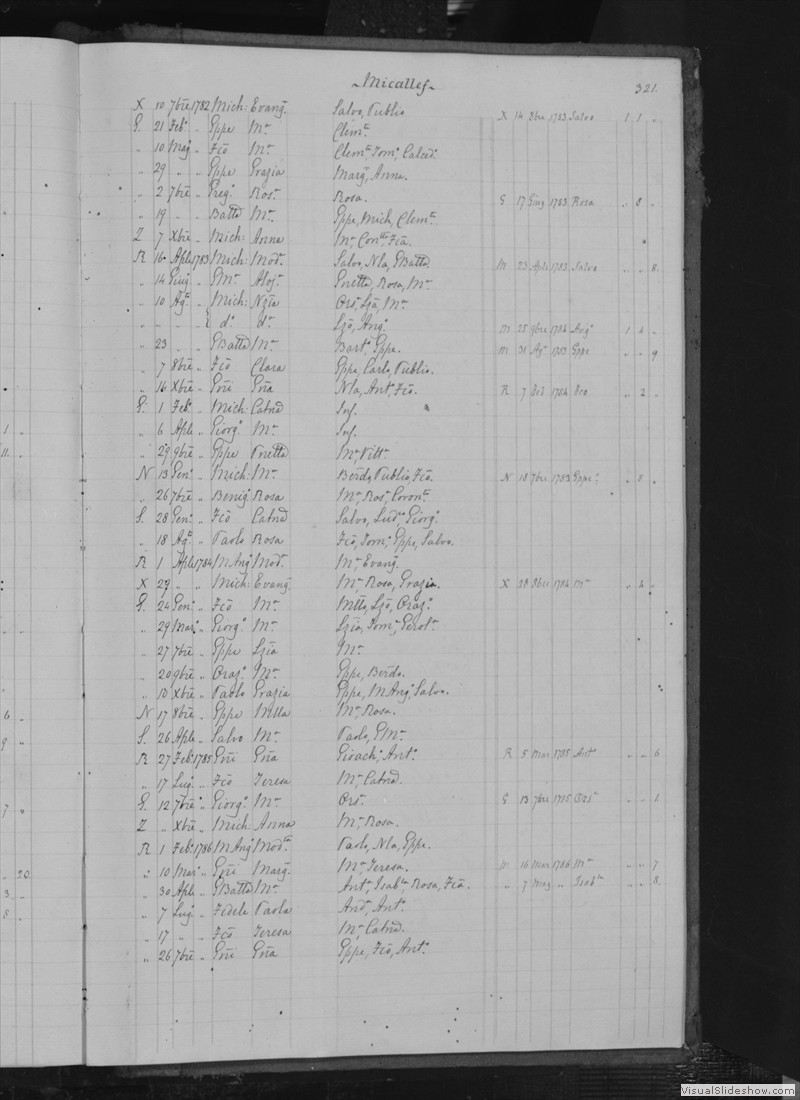 Micallef 321.
X 10 7bre 1782 Mich: Evang. Salvo, Publio X 14 8bre 1783 Salvo 1 1 "
G. 21 Feb. " Gppe Ma Clem.
" 10 Mag. " Fco Ma Clem. Dom. Calced.
" 29 " " Gppe Grazia Marg, Anna.
" 2 7bre " Greg. Rosa Rosa. G 17 Giug 1783 Rosa " 8 "
" 19 " " Batta Ma Gppe, Mich, Clem.
Z 7 Xbre " Mich: Anna Ma,
R 16 Aple 1783 Mich: Mod. Salvo, Nla, GBatta M 23 Aple 1783 Salvo " " 8
" 14 Giug. " GMa Rosa, Ma
" 10 Ag. " Mich: Nzia Ma
" " " " d. d. Lzo, Ang. M 25 9bre 1784 Ang. 1 4 "
" 23 " " GBatta Ma Bart, Gppe. M 31 Ag. 1783 Gppe " " 9
" 7 8bre " Fco Clara Gppe, Carlo, Publio.
" 16 Xbre " Gni Gna Nla, Ant, Fco. R 7 1784 " 2 "
G. 1 Feb. " Mich: Catna Inf.
" 6 Aple " Giorg. Ma Inf.
" 29 9bre " Gppe Ma Vitt.
N 13 Gen. " Mich: Ma Berdo, Publio, Fco. N 18 7bre 1783 Gppe "
" 26 7bre " Benig. Rosa Ma Ros, Coron.
S. 28 Gen. " Fco Catna Salvo, Lud. Giorg.
" 18 Ag. " Paolo Rosa Fco, Dom, Gppe, Salvo.
R 1 Aple 1784 MAng. Mod. Ma, Evang.
X 29 " " Mich: Evang. Ma, Rosa, Grazia. X 28 1784 Ma " 4 "
G. 24 Gen. " Fco Ma Mtto, Lzo, Oraz.
" 29 Mar. " Giorg. Ma Lzia, Dom, Gerol.
" 27 7bre " Gppe Lzia Ma
" 20 9bre " Oraz. Ma Gppe, Berdo.
" 10 Xbre " Paolo Grazia Gppe, MAng, Salvo.
N 17 8bre " Gppe Mtta Ma, Rosa.
S. 26 Aple " Salvo Ma Paolo, GMa
R 27 Feb. 1785 Gni Gna Gioach. Ant. R 5 Mar 1785 Ant " " 6
" 17 Lug. " Fco Teresa Ma, Catna.
G. 12 7bre " Giorg. Ma Ors. G 13 7bre 1785 Ors " " 1
Z " Xbre " Mich: Anna Ma, Rosa.
R 1 Feb. 1786 MAng. Mod. Paolo, Nla, Gppe.
" 10 Mar. " Gni Marg. Ma, Teresa. M 16 Mar 1786 Ma " " 7
" 30 Aple " GBatta Ma Ant, Isab, Rosa, Fca. " 7 Mag " Isab " " 8
" 7 Lug. " Fidele Paola And, Ant.
" 17 " " Fco Teresa Ma, Catna.
" 26 7bre " Gni Gna Gppe, Fco, Ant.
VisualSlideshow.com